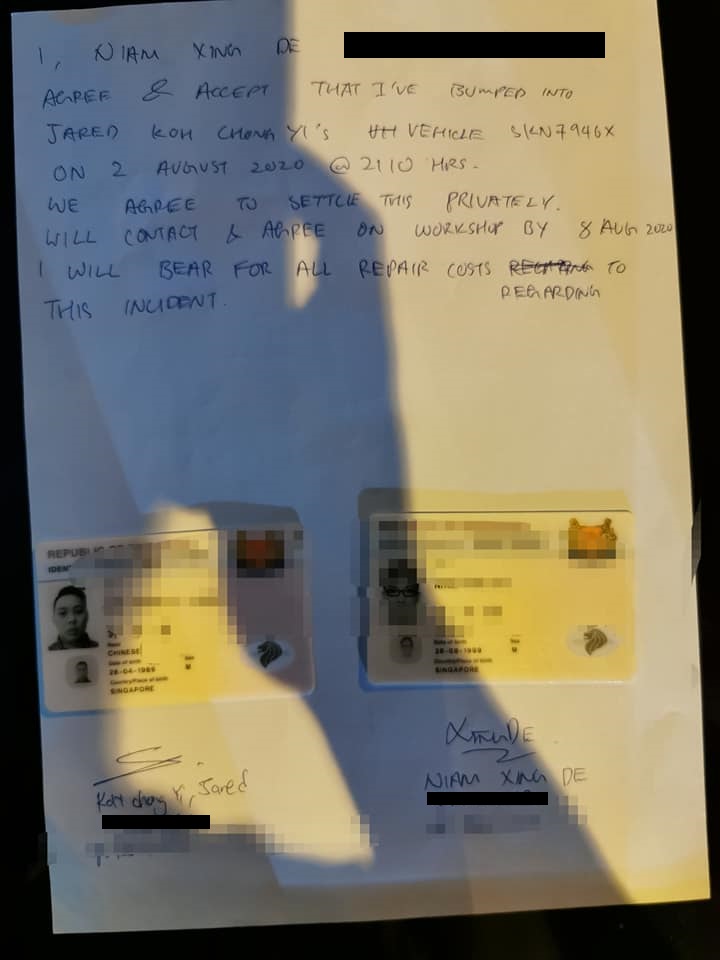 I, NIAM XING DE
AGREE & ACCEPT THAT I'VE BUMPED INTO
JARED KOH CHONG YI'S VEHICLE SKN7946X
ON 2 AUGUST 2020 @ 2110 HRS.
WE AGREE TO SETTLE THIS PRIVATELY.
WILL CONTACT & AGREE ON WORKSHOP BY 8 AUG 2020
I WILL BEAR FOR ALL REPAIR COSTS TO
REGARDING
THIS INCIDENT.
REPUBLIC
IDENT
Race
CHINESE
Date of birth Sex
28-04-1989 M
Country/Place of birth
SINGAPORE
Date of birth Sex
M
Country/Place of birth
SINGAPORE
XINGDE
Koh Chong Yi, Jared
NIAM XING DE